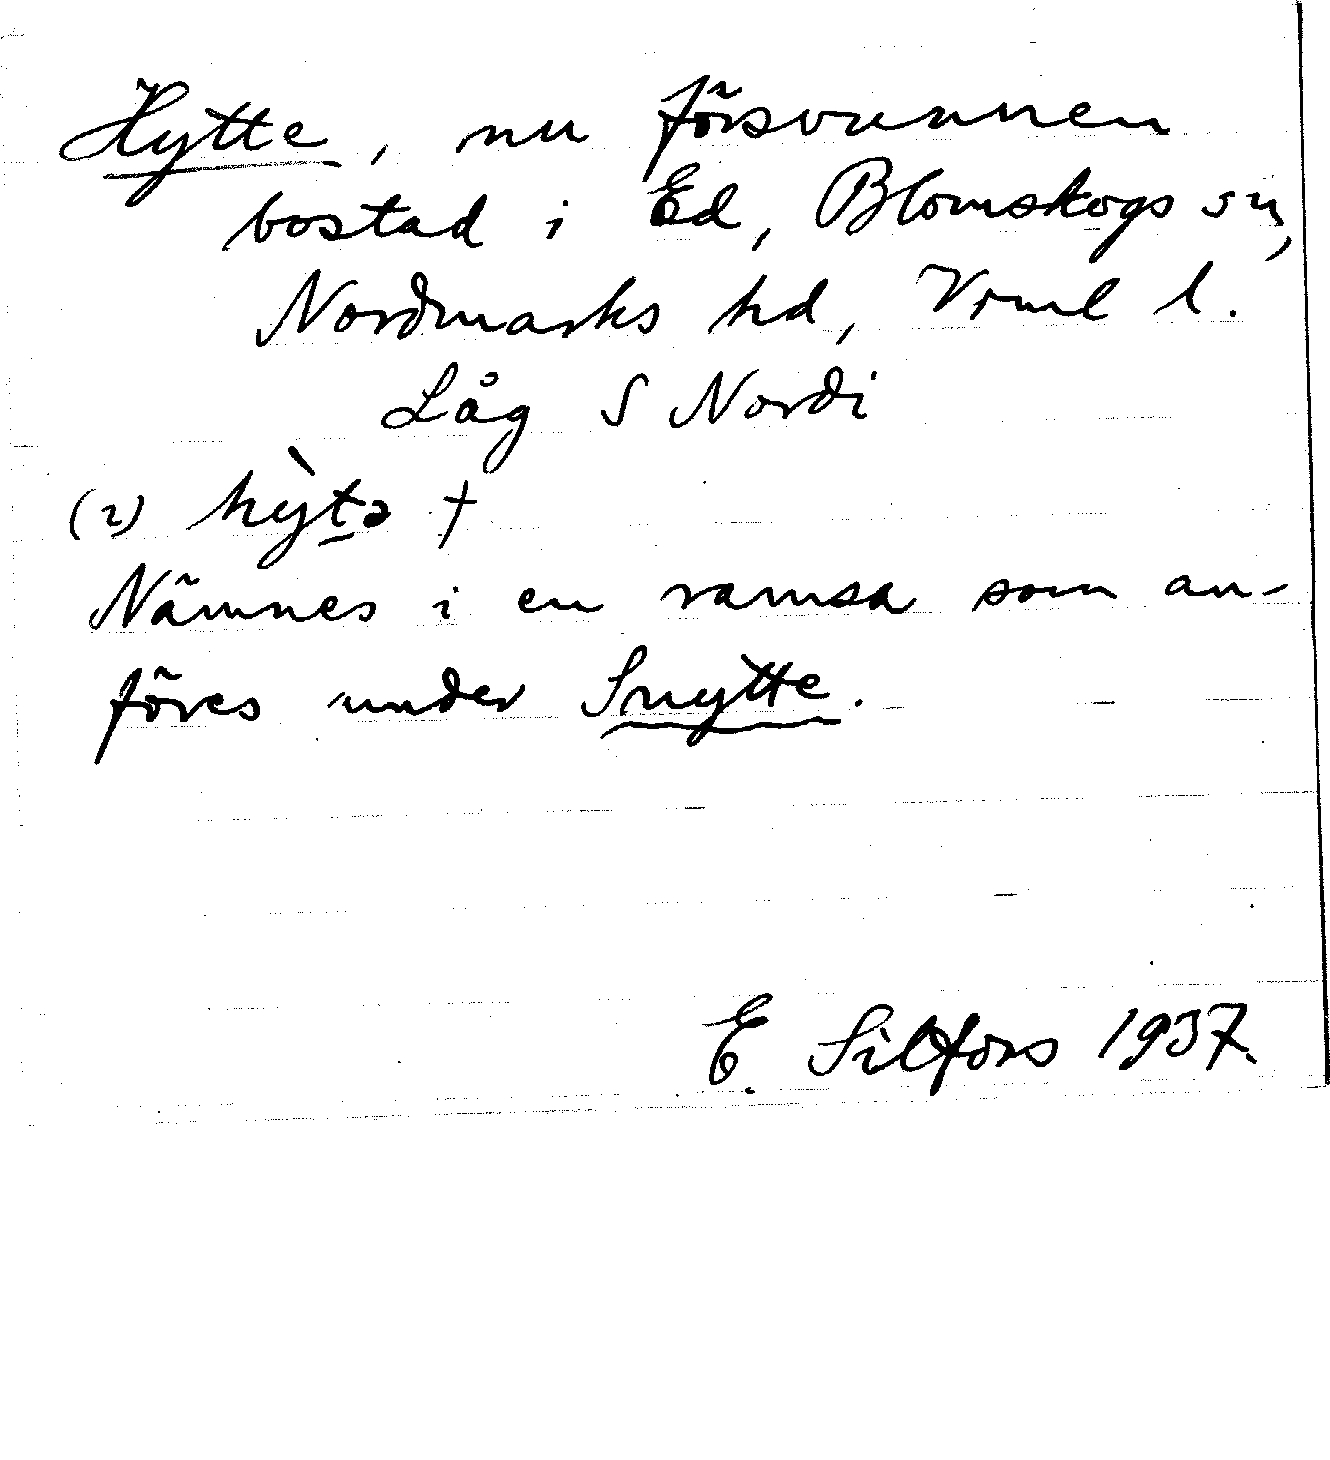 Hytte, nu försvunnen
bostad i Ed, Blomskogs sn,
Nordmarks hd, Vrml l.
Låg S Nordi
(2) hỳtə †
Nämnes i en ramsa som an-
föres under Snytte.
E. Silfors 1937.